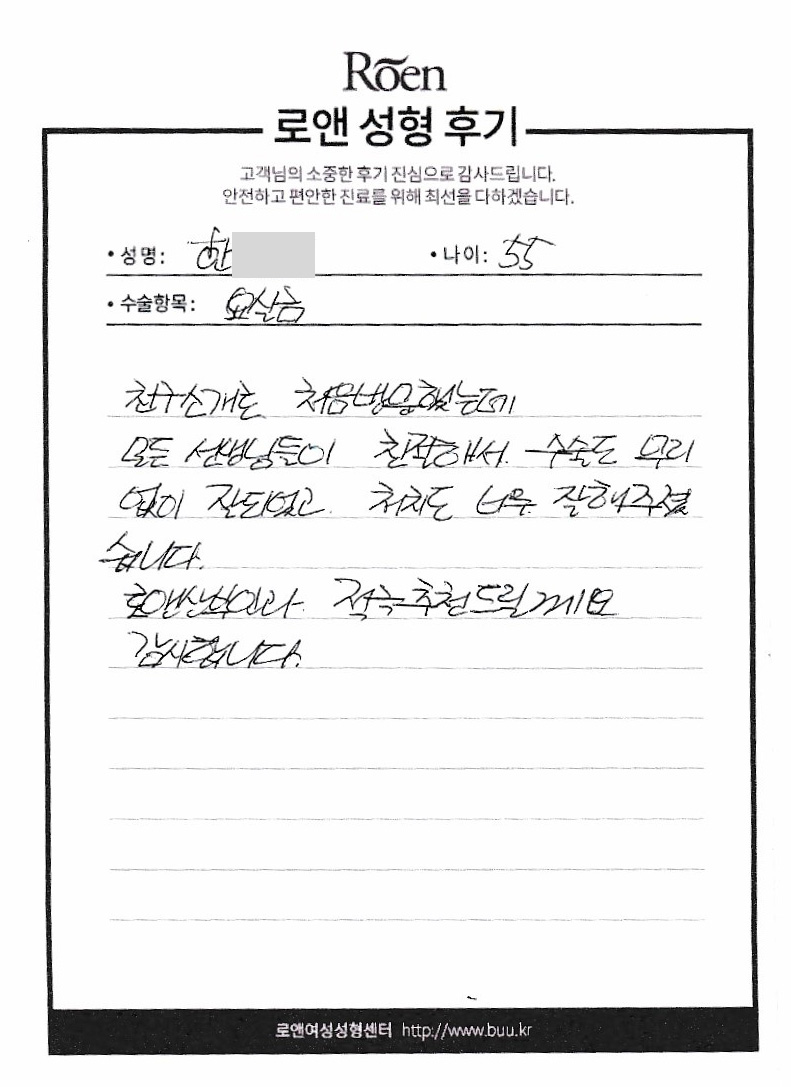 Roen
로앤 성형 후기
고객님의 소중한 후기 진심으로 감사드립니다.
안전하고 편안한 진료를 위해 최선을 다하겠습니다.
• 성명: 한 • 나이: 55
• 수술항목: 요실금
친구소개로 처음방문했는데
모든 선생님들이 친절해서 수술도 무리
없이 잘되었고 처치도 너무 잘해주셨
습니다.
로앤산부인과 적극추천드릴게요
감사합니다.
로앤여성성형센터 http://www.buu.kr